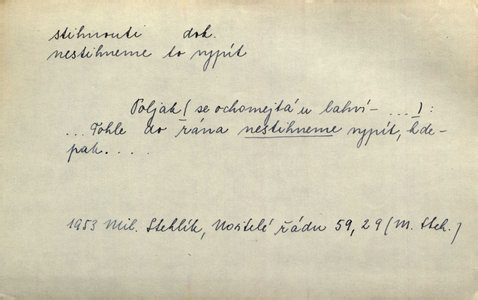 stihnouti dok.
nestihneme to vypít
Poljak (se ochomejtá u lahví – ...):
... Tohle do rána nestihneme vypít, kde-
pak. . . .
1953 Mil. Stehlík, Nositelé řádu 59, 29 (M. Steh.)